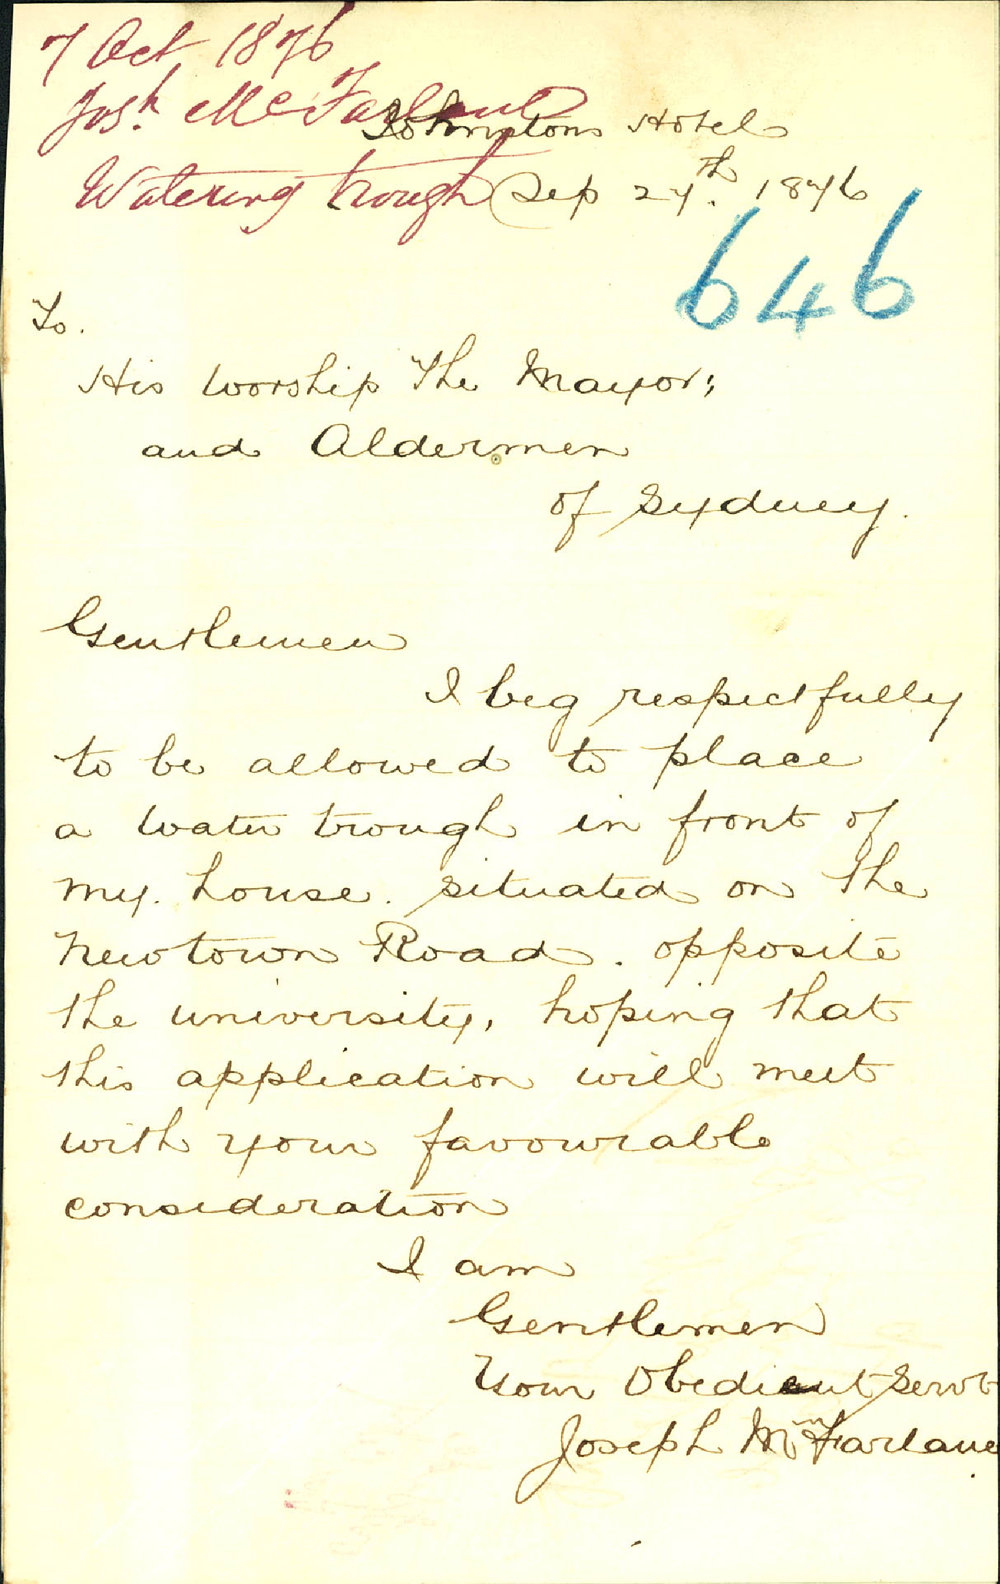 7 Oct 1876
Josh. McFarland
Johnstons Hotel
Watering trough
Sep 27th. 1876
646
To.
His Worship The Mayor;
and Aldermen
of Sydney.
Gentlemen
I beg respectfully
to be allowed to place
a water trough in front of
my. house. situated on the
Newtown Road. opposite
the university, hoping that
this application will meet
with your favourable
consideration
I am
Gentlemen
Your Obedient Servt
Joseph McFarlane